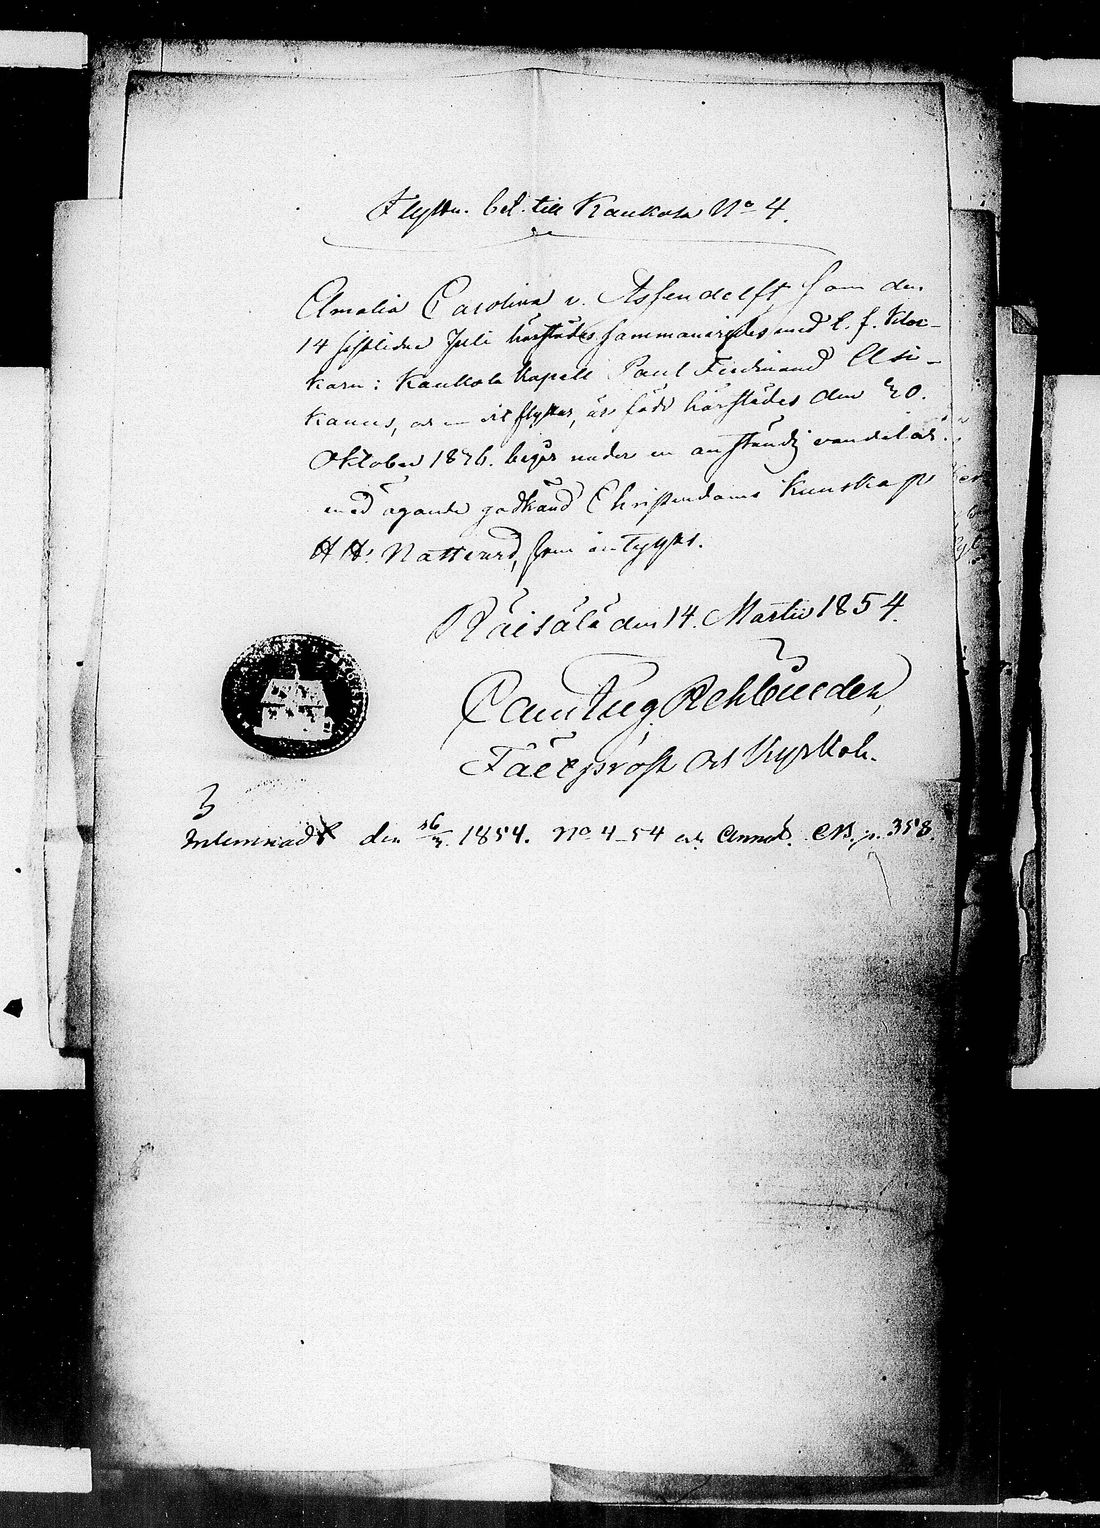 Flyttn. bet. till Kaukola No 4.
Amalia Carolina v. Assendelfft som den
14 sistlidne Juli härstädes sammanvigdes med t. f. Kloc-
karn i Kaukola Kapell Paul Ferdinand Elsi-
kanus, och nu dit flyttar, är född härstädes den 20.
Oktober 1826. beger under en anständig vandel är
med ägande godkänd Christendoms Kunskap
H H. Nattvard, som intygas.
Räisälä den 14. Martii 1854.
Carl Aug. Rehbinder,
Fältprost och Kyrkoh.
3
Inlemnadt den 16/3. 1854. No 4_54 och Annot. CB. p. 358.